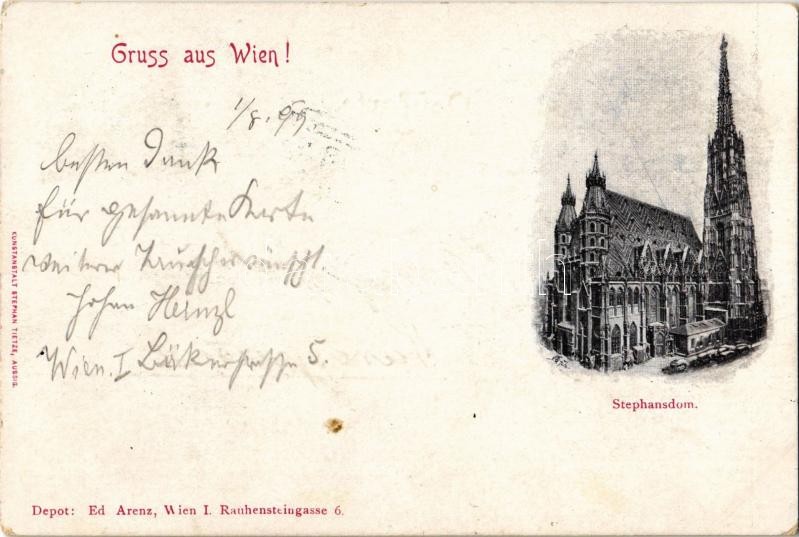 Gruss aus Wien!
1/8. 99.
besten Dank
für gesannte Karte
weiterer Tausch erwünscht
Heinzl
Wien. I Bäkerstraße 5.
KUNSTANSTALT STEPHAN TIETZE, AUSSIG.
Stephansdom.
Depot: Ed Arenz, Wien I. Rauhensteingasse 6.